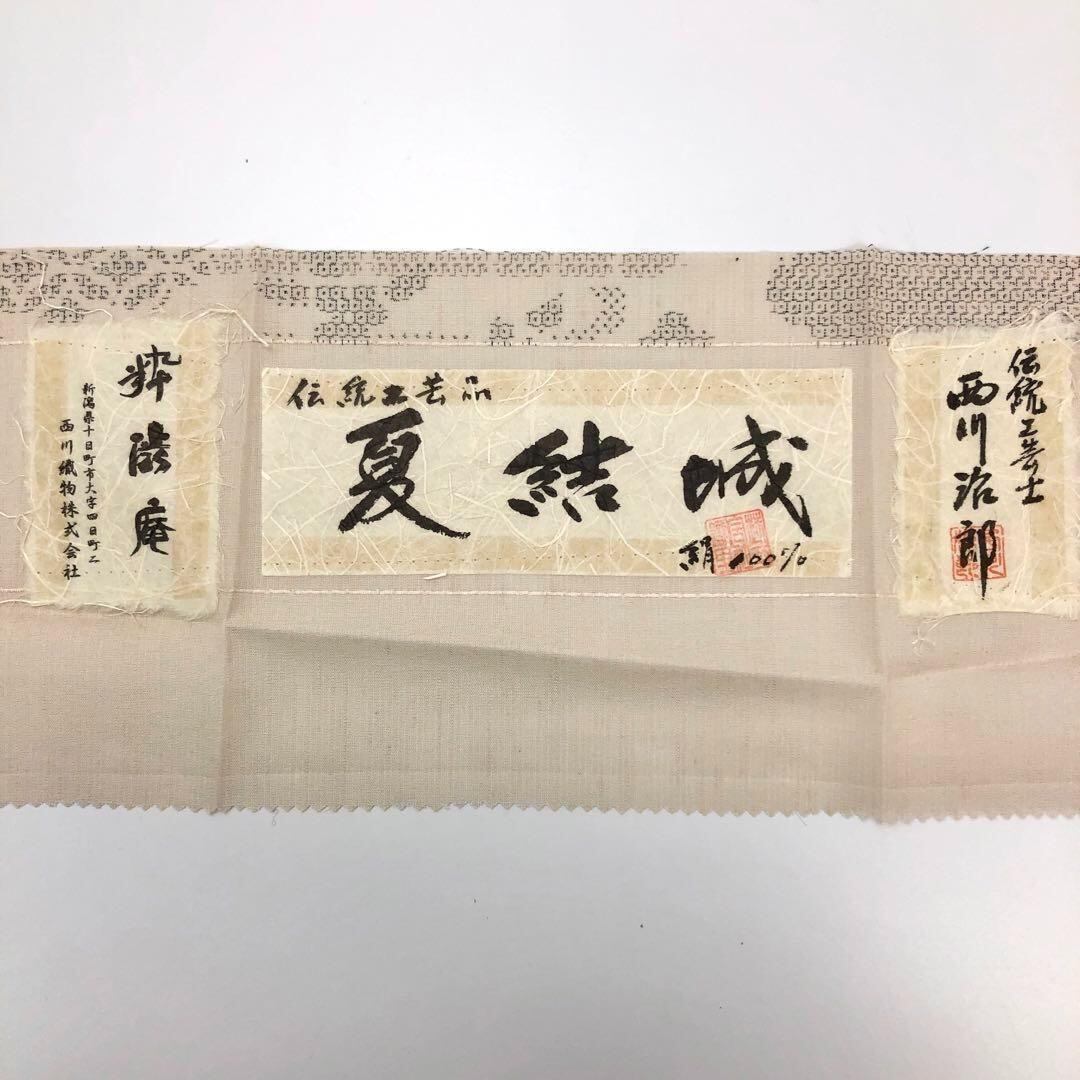 伝統工芸士
西川治郎
伝統工芸品
夏結城
絹100%
粋 庵
新潟県十日町市大字四日町二
西川織物株式会社